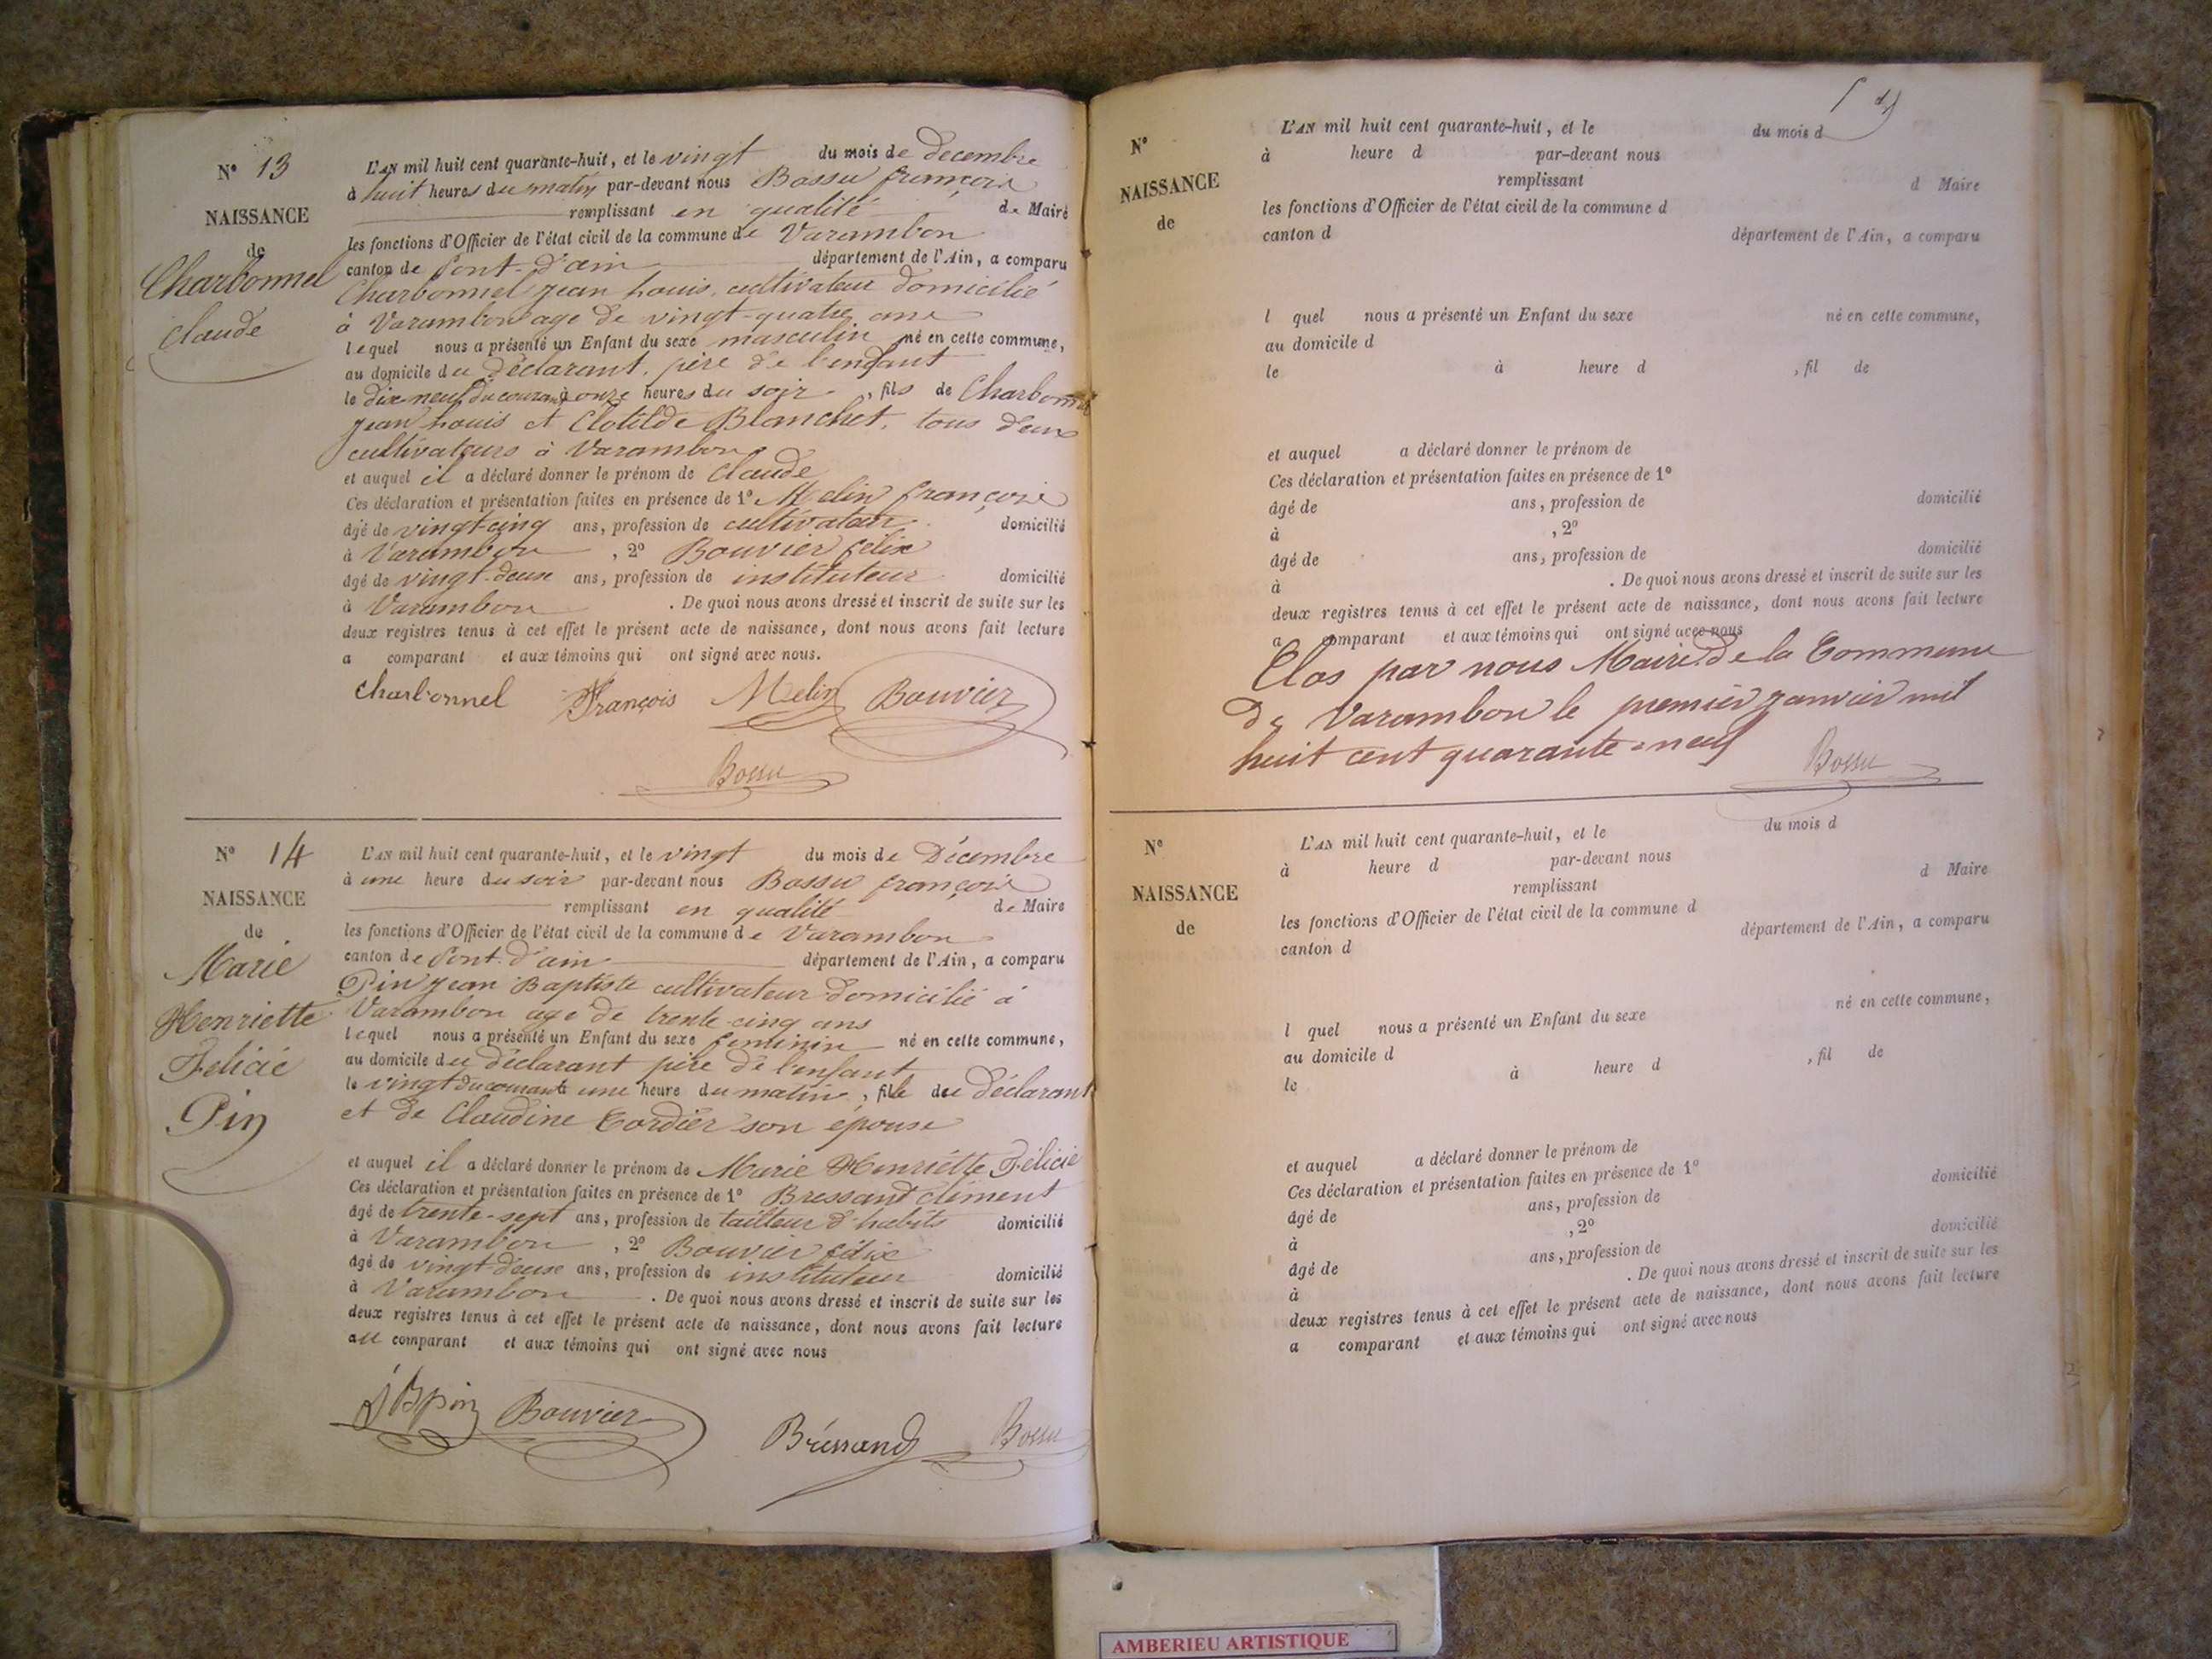 N° 13
NAISSANCE
de
Charbonnel
Claude
L'AN mil huit cent quarante-huit, et le vingt du mois de decembre
à huit heures du matin par-devant nous Bossu françois
remplissant en qualité de Maire
les fonctions d'Officier de l'état civil de la commune de Varambon
canton de Pont-d'ain département de l'Ain, a comparu
Charbonnel jean Louis, cultivateur domicilié
à Varambon age de vingt-quatre ans
lequel nous a présenté un Enfant du sexe masculin né en cette commune,
au domicile du déclarant, père de l'enfant
le dix-neuf du courant à onze heures du soir, fils de Charbonnel
jean Louis et Clotilde Blanchet, tous deux
cultivateurs à Varambon
et auquel il a déclaré donner le prénom de Claude
Ces déclaration et présentation faites en présence de 1° Melin françois
âgé de vingt-cinq ans, profession de cultivateur domicilié
à Varambon, 2° Bouvier félix
âgé de vingt-deux ans, profession de instituteur domicilié
à Varambon. De quoi nous avons dressé et inscrit de suite sur les
deux registres tenus à cet effet le présent acte de naissance, dont nous avons fait lecture
a comparant et aux témoins qui ont signé avec nous.
Charbonnel François Melin Bouvier
Bossu
N° 14
NAISSANCE
de
Marie
Henriette
Félicie
Pin
L'AN mil huit cent quarante-huit, et le vingt du mois de Décembre
à une heure du soir par-devant nous Bossu françois
remplissant en qualité de Maire
les fonctions d'Officier de l'état civil de la commune de Varambon
canton de Pont-d'ain département de l'Ain, a comparu
Pin jean Baptiste cultivateur domicilié à
Varambon age de trente-cinq ans
lequel nous a présenté un Enfant du sexe feminin né en cette commune,
au domicile du déclarant père de l'enfant
le vingt du courant à une heure du matin, fille du déclarant
et de Claudine Cordier son épouse
et auquel il a déclaré donner le prénom de Marie Henriette Félicie
Ces déclaration et présentation faites en présence de 1° Bressant clément
âgé de trente-sept ans, profession de tailleur d'habits domicilié
à Varambon, 2° Bouvier félix
âgé de vingt-deux ans, profession de instituteur domicilié
à Varambon. De quoi nous avons dressé et inscrit de suite sur les
deux registres tenus à cet effet le présent acte de naissance, dont nous avons fait lecture
au comparant et aux témoins qui ont signé avec nous
JBpin Bouvier Bressand Bossu
N°
NAISSANCE
de
L'AN mil huit cent quarante-huit, et le du mois d
à heure d par-devant nous
remplissant d Maire
les fonctions d'Officier de l'état civil de la commune d
canton d département de l'Ain, a comparu
l quel nous a présenté un Enfant du sexe né en cette commune,
au domicile d
le à heure d , fil de
et auquel a déclaré donner le prénom de
Ces déclaration et présentation faites en présence de 1°
âgé de ans, profession de domicilié
à , 2°
âgé de ans, profession de domicilié
à . De quoi nous avons dressé et inscrit de suite sur les
deux registres tenus à cet effet le présent acte de naissance, dont nous avons fait lecture
a comparant et aux témoins qui ont signé avec nous
Clos par nous Maire de la Commune
de Varambon le premier janvier mil
huit cent quarante-neuf
Bossu
N°
NAISSANCE
de
L'AN mil huit cent quarante-huit, et le du mois d
à heure d par-devant nous
remplissant d Maire
les fonctions d'Officier de l'état civil de la commune d
canton d département de l'Ain, a comparu
l quel nous a présenté un Enfant du sexe né en cette commune,
au domicile d
le à heure d , fil de
et auquel a déclaré donner le prénom de
Ces déclaration et présentation faites en présence de 1°
âgé de ans, profession de domicilié
à , 2°
âgé de ans, profession de domicilié
à . De quoi nous avons dressé et inscrit de suite sur les
deux registres tenus à cet effet le présent acte de naissance, dont nous avons fait lecture
a comparant et aux témoins qui ont signé avec nous
AMBERIEU ARTISTIQUE